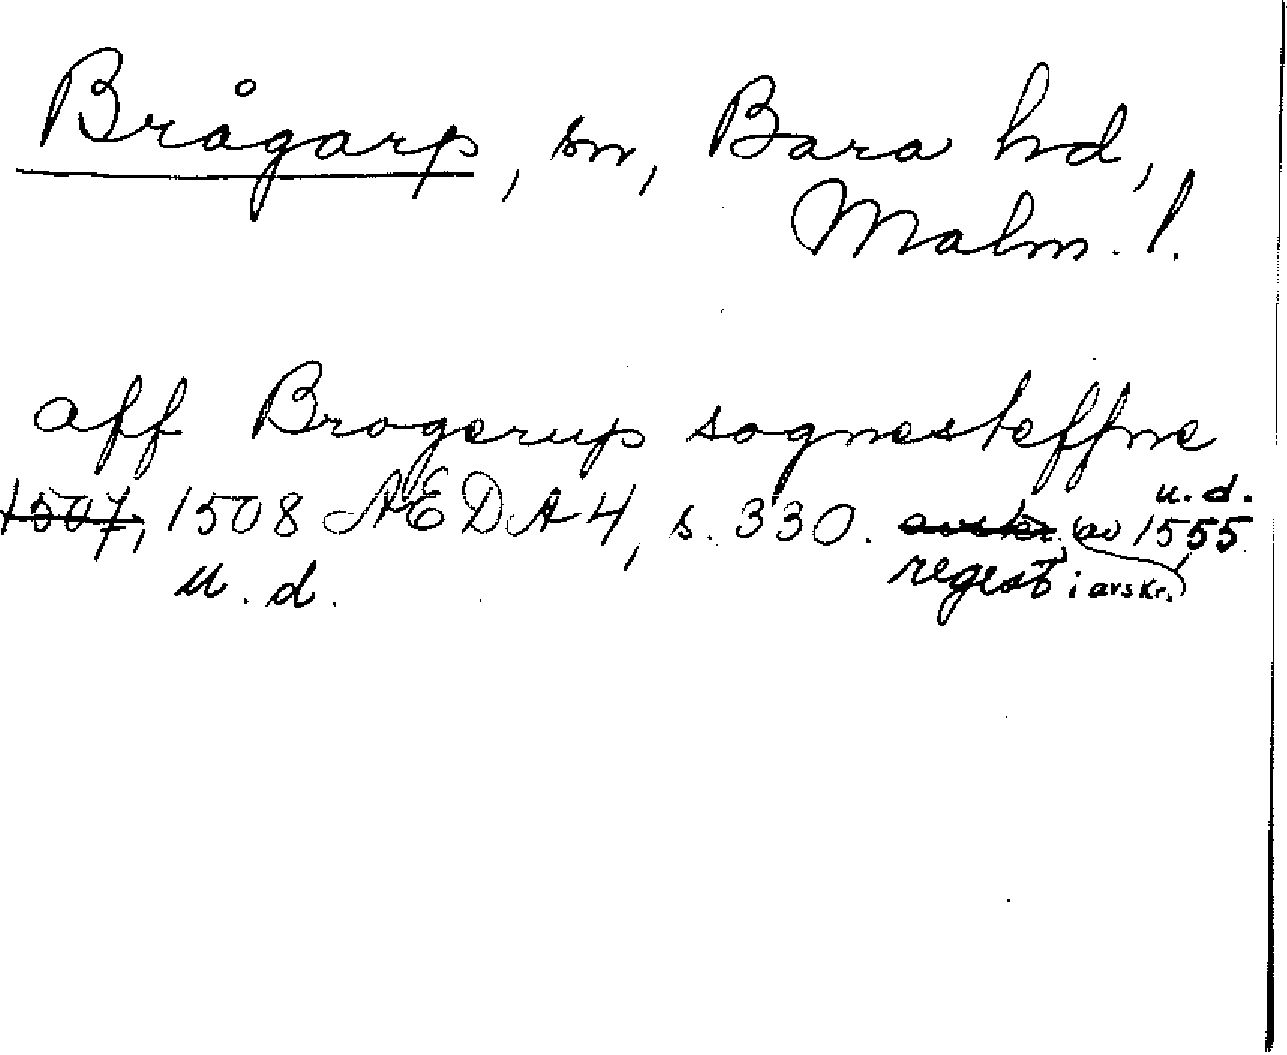 Brågarp, sn, Bara hd,
Malm. l.
aff Brogerup sognesteffne
1507, 1508 ÆDA 4, s. 330. avskr. av 1555 u.d.
u. d. regest i avskr.